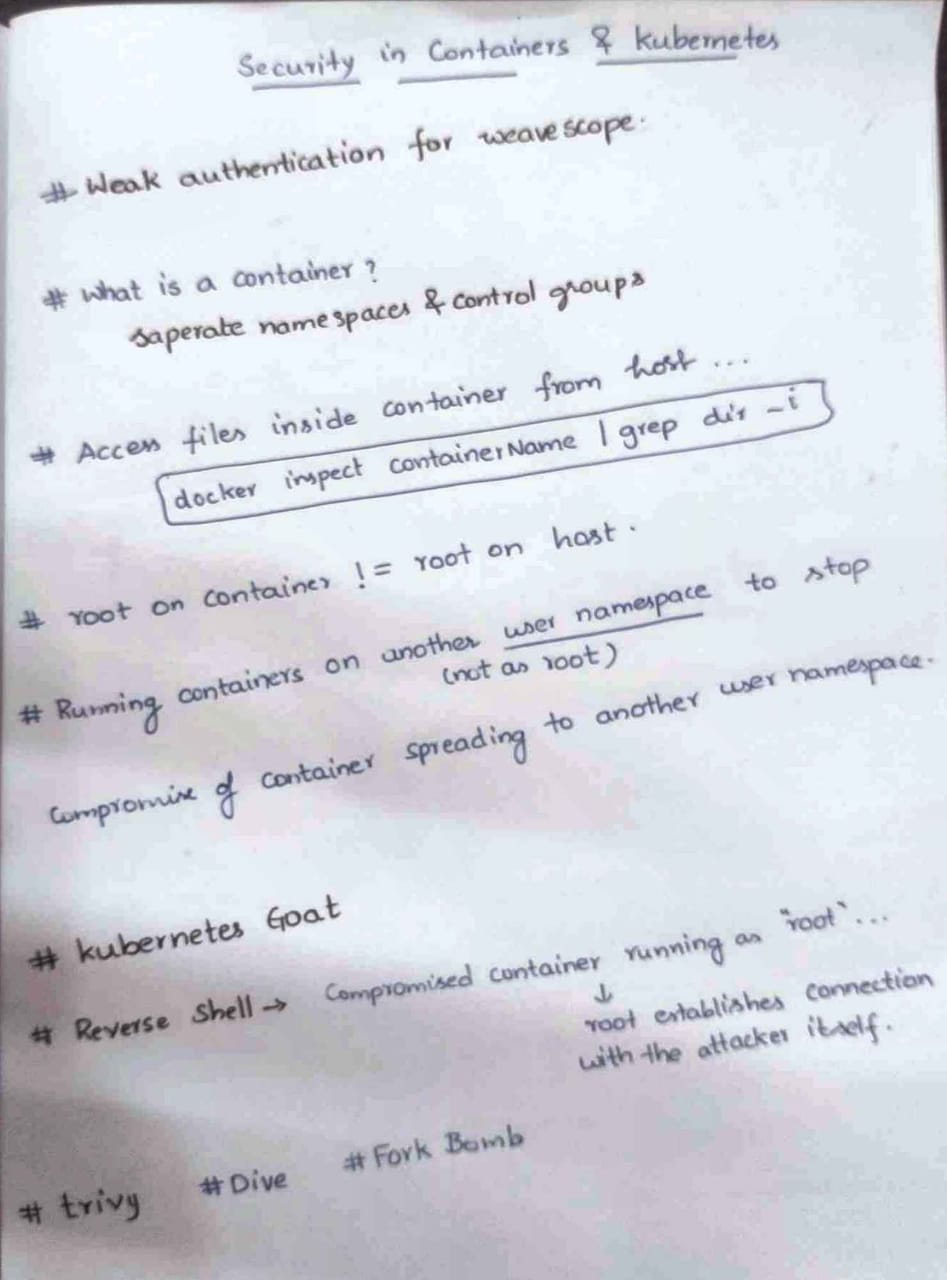 Security in Containers & kubernetes
# Weak authentication for weavescope.
# What is a container ?
saperate namespaces & control groups
# Access files inside container from host ...
docker inspect containerName | grep dir -i
# root on container != root on host .
# Running containers on another user namespace to stop
(not as root)
Compromise of container spreading to another user namespace.
# kubernetes Goat
# Reverse Shell → Compromised container running as "root" ...
↓
root establishes connection
with the attacker itself.
# trivy # Dive # Fork Bomb